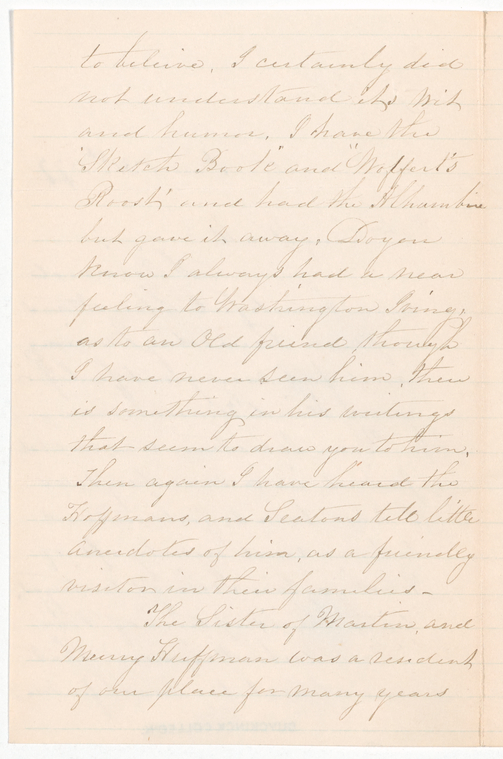 to beleive. I certainly did
not understand its wit
and humor. I have the
"Sketch Book" and "Woffert's
Roost" and had the Alhambra
but gave it away. Do you
know I always had a near
feeling to Washington Irving,
as to an Old friend though
I have never seen him, there
is something in his writings
that seem to draw you to him.
Then again I have heard the
Hoffmans, and Seatons tell little
anecdotes of him, as a friendly
visitor in their families -
The Sister of Martin, and
Murry Huffman was a resident
of our place for many years